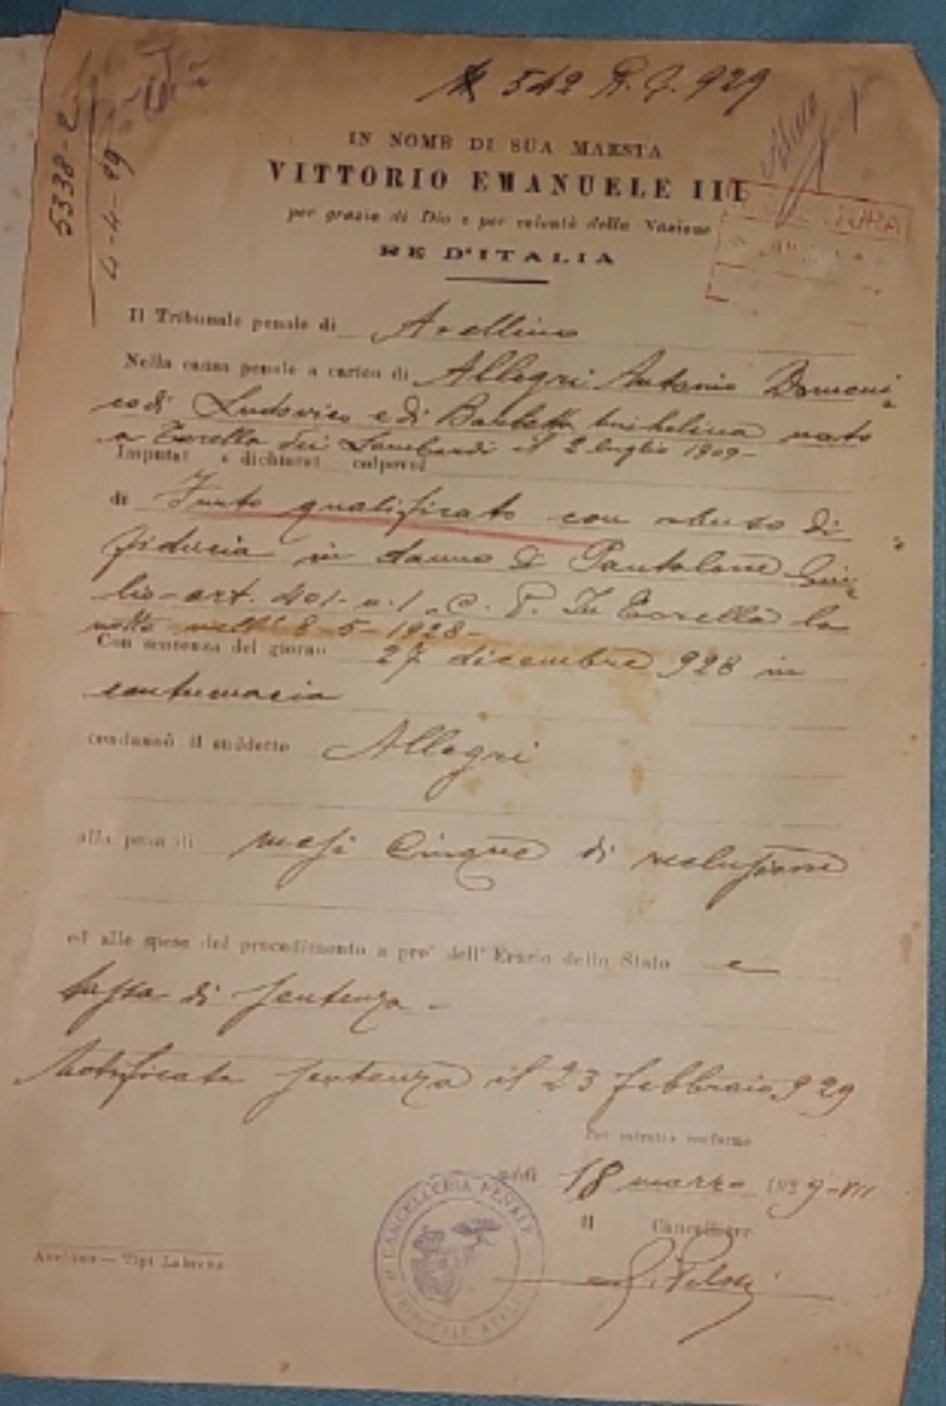 542 R. G. 929
5338-2
4-4-99
IN NOME DI SUA MAESTA
VITTORIO EMANUELE III
per grazia di Dio e per volontà della Nazione
RE D'ITALIA
Il Tribunale penale di Avellino
Nella causa penale a carico di Allegri Antonio Domeni-
co di Ludovico e di Michelina nato
a Torella dei Lombardi il 2 luglio 1909-
Imputat e dichiarat colpevol
di Furto qualificato con abuso di
fiducia in danno di Pantalone
lio - art. 401 - n. 1 - C. P. In Torella la
notte dell' 8-5-1928-
Con sentenza del giorno 27 dicembre 928 in
contumacia
condannò il suddetto Allegri
alla pena di mesi Cinque di reclusione
ed alle spese del procedimento a pro' dell' Erario dello Stato e
tassa di sentenza -
Notificata sentenza il 23 febbraio 929
Per estratto conforme
addì 18 marzo 1929-VII
Il Cancelliere
CANCELLERIA PENALE
TRIBUNALE AVELLINO
Avellino — Tipi Labruna